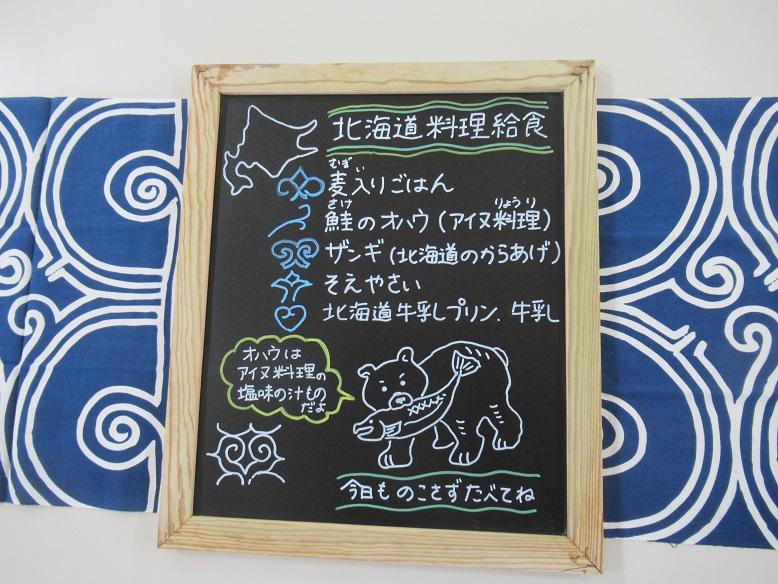 北海道料理給食
麦入りごはん
むぎい
鮭のオハウ(アイヌ料理)
さけ りょうり
ザンギ(北海道のからあげ)
そえやさい
北海道牛乳プリン、牛乳
オハウは
アイヌ料理の
塩味の汁もの
だよ
今日ものこさずたべてね